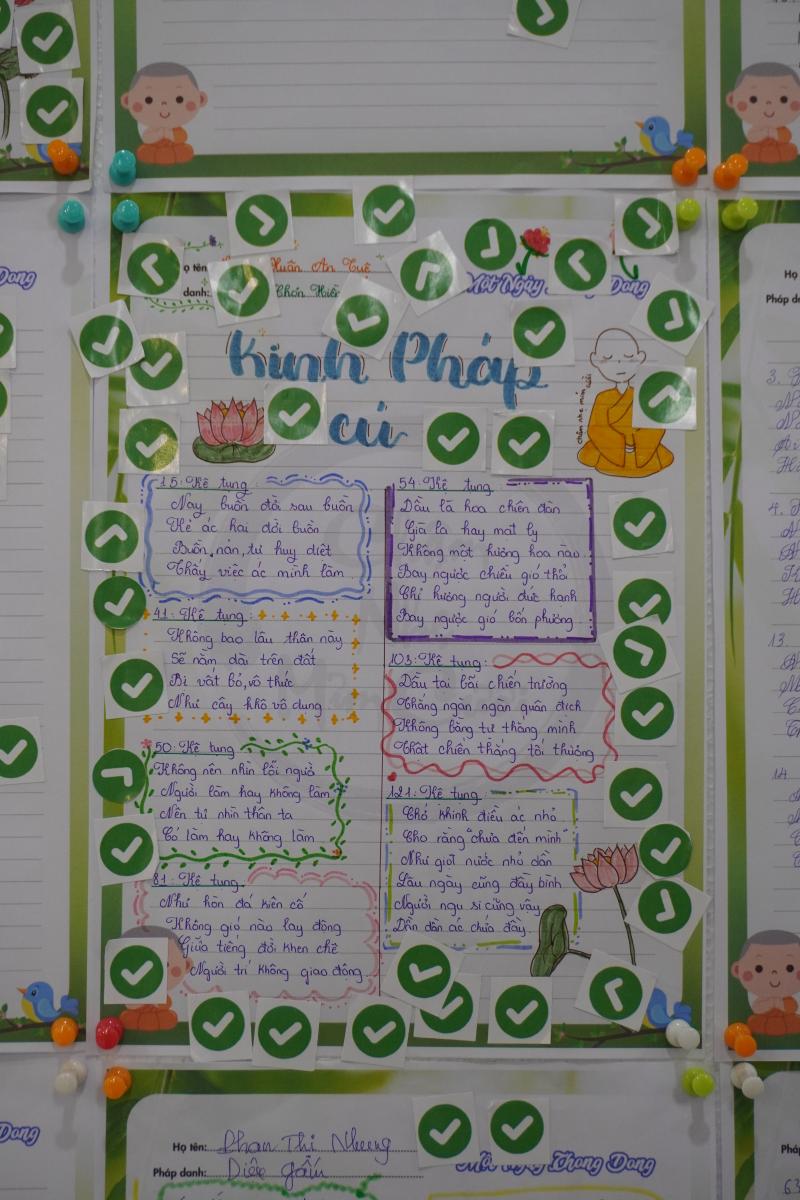 ọ tên:
Huân An Tuệ
danh:
Chơn Hiền
Một Ngày
Dong
Kinh Pháp
cú
chậm nhẹ mỉm cười
15: Kệ tụng
Nay buồn đời sau buồn
Kẻ ác hai đời buồn
Buồn nản, tự huỷ diệt
Thấy việc ác mình làm
41: Kệ tụng:
Không bao lâu thân này
Sẽ nằm dài trên đất
Bị vất bỏ, vô thức
Như cây khô vô dụng
50: Kệ tụng
Không nên nhìn lỗi người
Người làm hay không làm
Nên tự nhìn thân ta
Có làm hay không làm
81: Kệ tụng
Như hòn đá kiên cố
Không gió nào lay động
Giữa tiếng đời khen chê
Người trí không giao động
54: Kệ tụng
Dầu là hoa chiên đàn
Già la hay mạt ly
Không một hương hoa nào
Bay ngược chiều gió thổi
Chỉ hương người đức hạnh
Bay ngược gió bốn phương
103: Kệ tụng:
Dầu tại bãi chiến trường
Thắng ngàn ngàn quân địch
Không bằng tự thắng mình
Thật chiến thắng tối thượng
121: Kệ tụng
Chớ khinh điều ác nhỏ
Cho rằng "chưa đến mình"
Như giọt nước nhỏ dần
Lâu ngày cũng đầy bình
Người ngu si cũng vậy
Dần dần ác chứa đầy.
Dong
Họ
Pháp danh:
3.
4.
13.
14
Họ tên: Phan Thị Nhung
Pháp danh: Diệu Gấm
Một Ngày Thong Dong
Dong
Họ
Pháp
63